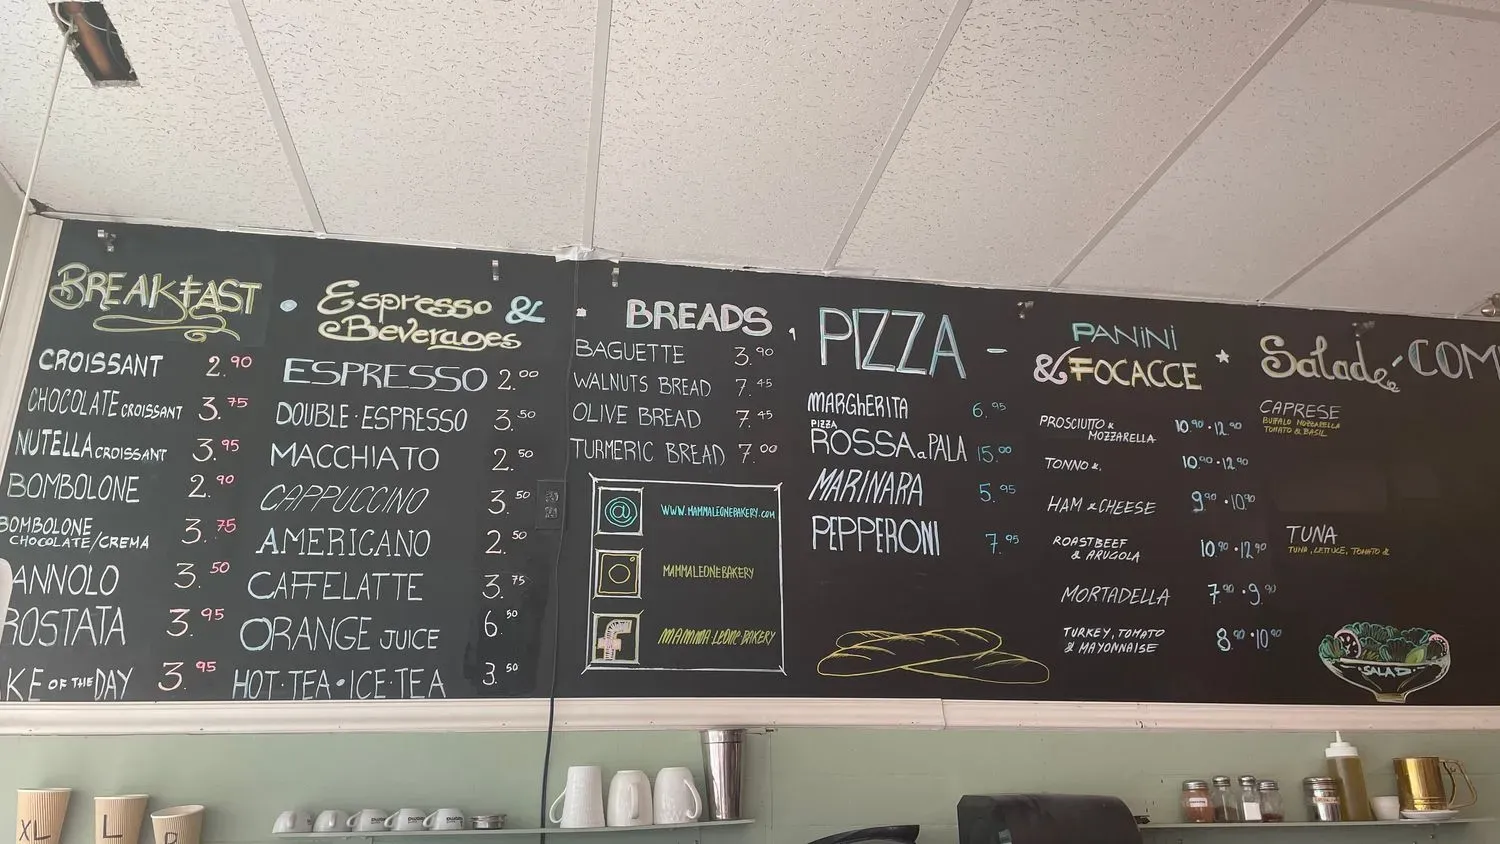 BREAKFAST
CROISSANT 2.90
CHOCOLATE CROISSANT 3.75
NUTELLA CROISSANT 3.95
BOMBOLONE 2.90
BOMBOLONE
CHOCOLATE/CREMA 3.75
ANNOLO 3.50
ROSTATA 3.95
AKE OF THE DAY 3.95
Espresso &
Beverages
ESPRESSO 2.00
DOUBLE·ESPRESSO 3.50
MACCHIATO 2.50
CAPPUCCINO 3.50
AMERICANO 2.50
CAFFELATTE 3.75
ORANGE JUICE 6.50
HOT·TEA·ICE·TEA 3.50
BREADS
BAGUETTE 3.90
WALNUTS BREAD 7.45
OLIVE BREAD 7.45
TURMERIC BREAD 7.00
@ WWW.MAMMALEONEBAKERY.COM
MAMMALEONEBAKERY
f MAMMA·LEONE·BAKERY
PIZZA -
MARGHERITA 6.95
PIZZA
ROSSA a PALA 15.00
MARINARA 5.95
PEPPERONI 7.95
PANINI
& FOCACCE
PROSCIUTTO &
MOZZARELLA 10.90·12.90
TONNO &, 10.90·12.90
HAM & CHEESE 9.90·10.90
ROASTBEEF
& ARUGOLA 10.90·12.90
MORTADELLA 7.90·9.90
TURKEY, TOMATO
& MAYONNAISE 8.90·10.90
Salade
CAPRESE
BUFALO MOZZARELLA
TOMATO & BASIL
TUNA
TUNA, LETTUCE, TOMATO &
SALAD
COM
XL
L